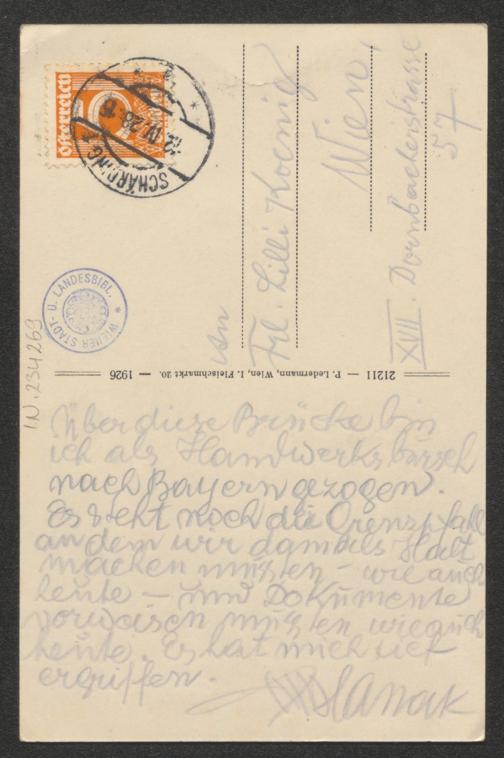 Österreich
SCHÄRDING
12.IV.28
WIENER STADT- U. LANDESBIBL.
I.N. 234269
21211 — P. Ledermann, Wien, I. Fleischmarkt 20. — 1926
an
Frl. Lilli Koenig
Wien,
XVII. Dornbacherstrasse
57
Über diese Brücke bin
ich als Handwerksbursch
nach Bayern gezogen.
Es steht noch die Grenzpfall
an dem wir damals Halt
machen mußten – wie auch
heute – und Dokumente
vorweisen mußten wie auch
heute. Es hat mich tief
ergriffen.
Hanak